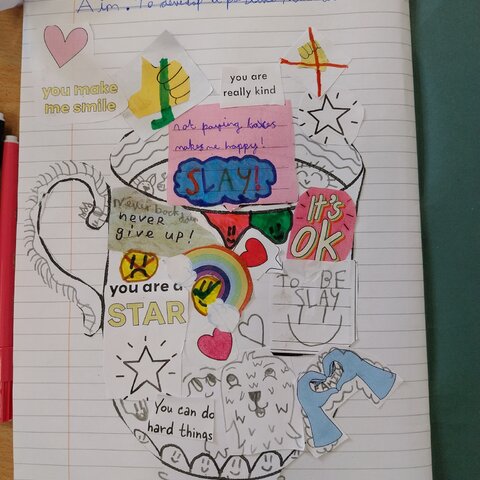 Aim: To develop a positive
you make
me smile
you are
really kind
not paying taxes
makes me happy!
SLAY!
Never back down
never
give up!
IT'S
OK
you are a
STAR
TO BE
SLAY
You can do
hard things